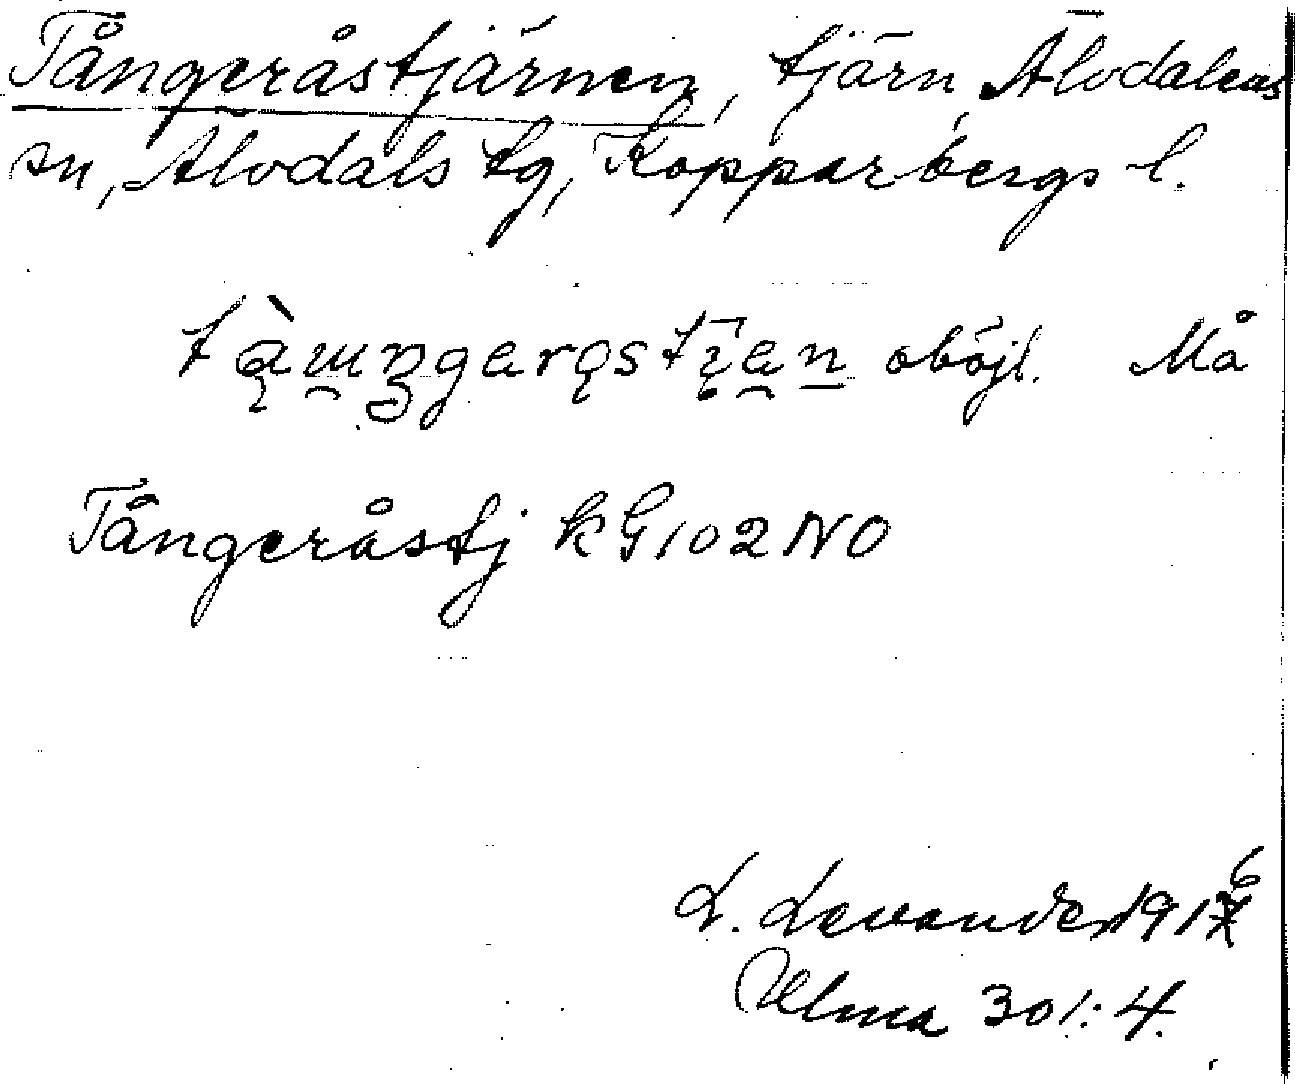 Tångeråstjärnen, tjärn, Älvdalens
sn, Älvdals tg, Kopparbergs l.
oböjl. Må
Tångeråstj kG102NO
L. Levander 1916
Ulma 301:4.